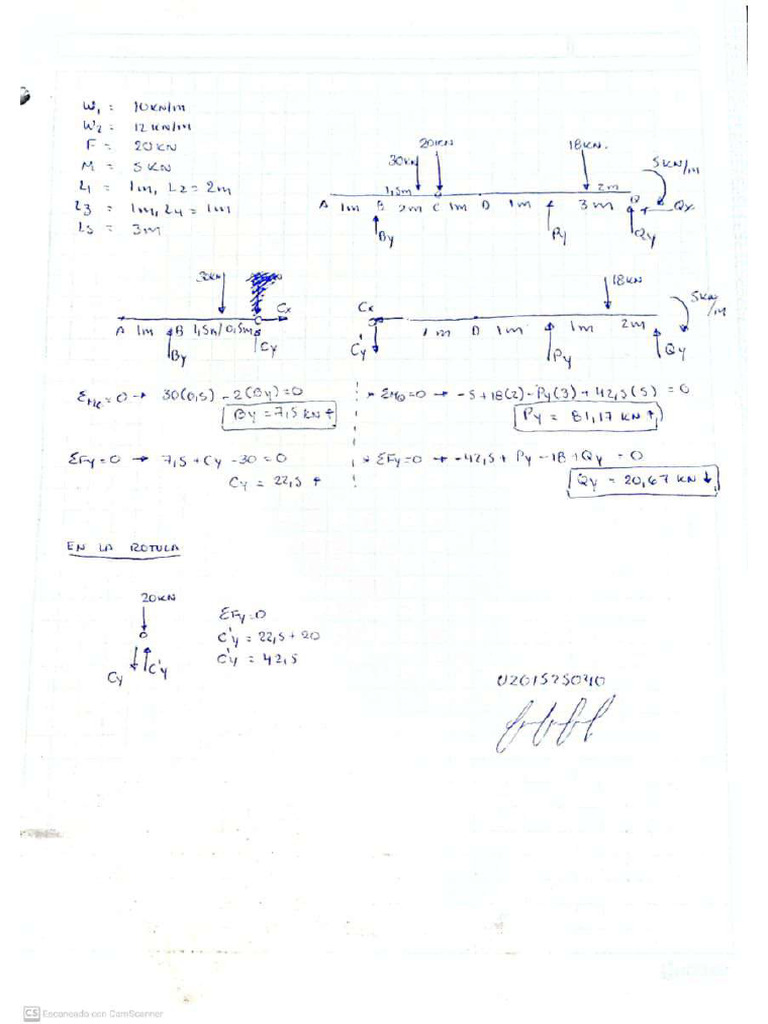 W₁ = 10KN/m
W₂ = 12KN/m
F = 20KN
M = 5KN
L₁ = 1m, L₂ = 2m
L₃ = 1m, L₄ = 1m
L₅ = 3m
20KN
30KN
18KN.
5KN/m
1,5m
2m
A 1m B 2m C 1m D 1m 3m Q
Qx
By
Py
Qy
30KN
Cx
A 1m B 1,5m/0,5m
By
Cy
18KN
5KN/m
Cx
C'y
1m D 1m 1m 2m
Py
Qy
ΣMc=0 → 30(0,5) - 2(By)=0
By = 7,5 KN ↑
ΣFy=0 → 7,5 + Cy - 30 = 0
Cy = 22,5 ↑
* ΣMQ=0 → -5+18(2)-Py(3)+42,5(5) = 0
Py = 81,17 KN ↑
* ΣFy=0 → -42,5 + Py - 18 + Qy = 0
Qy = 20,67 KN ↓
EN LA ROTULA
20KN
Cy
C'y
ΣFy=0
C'y = 22,5 + 20
C'y = 42,5
U201525040
CS Escaneado con CamScanner